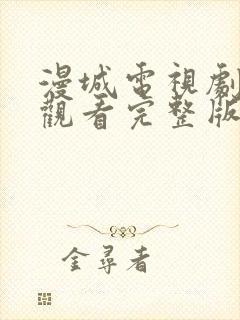 漫城電視劇
觀看完整版
金尋者